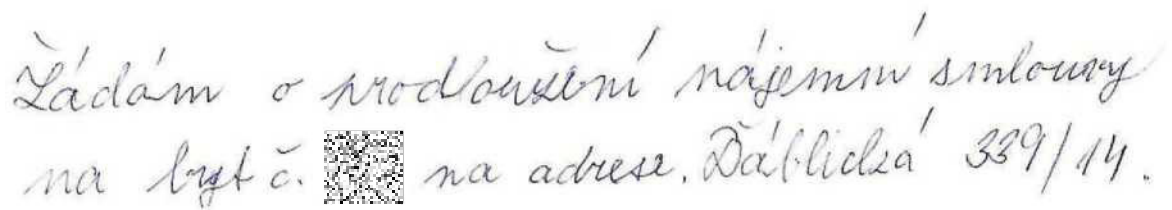 Žádám o prodloužení nájemní smlouvy
na byt č. na adrese. Ďáblická 339/14.